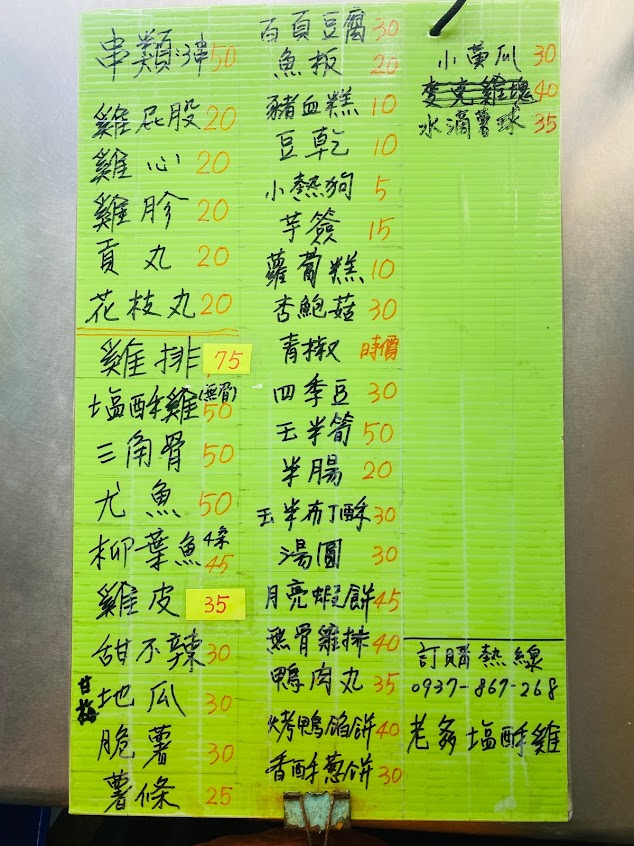 串類:3串50
雞屁股20
雞心20
雞胗20
貢丸20
花枝丸20
雞排75
塩酥雞(無骨)50
三角骨50
尤魚50
柳葉魚4条45
雞皮35
甜不辣30
甘梅地瓜30
脆薯30
薯條25
百頁豆腐30
魚板20
豬血糕10
豆乾10
小熱狗5
芋簽15
蘿蔔糕10
杏鮑菇30
青椒時價
四季豆30
玉半筍50
半腸20
玉半布丁酥30
湯圓30
月亮蝦餅45
無骨雞排40
鴨肉丸35
烤鴨餡餅40
香酥蔥餅30
小黄瓜30
麥克雞塊40
水滴薯球35
訂購熱線
0937-867-268
老爺塩酥雞